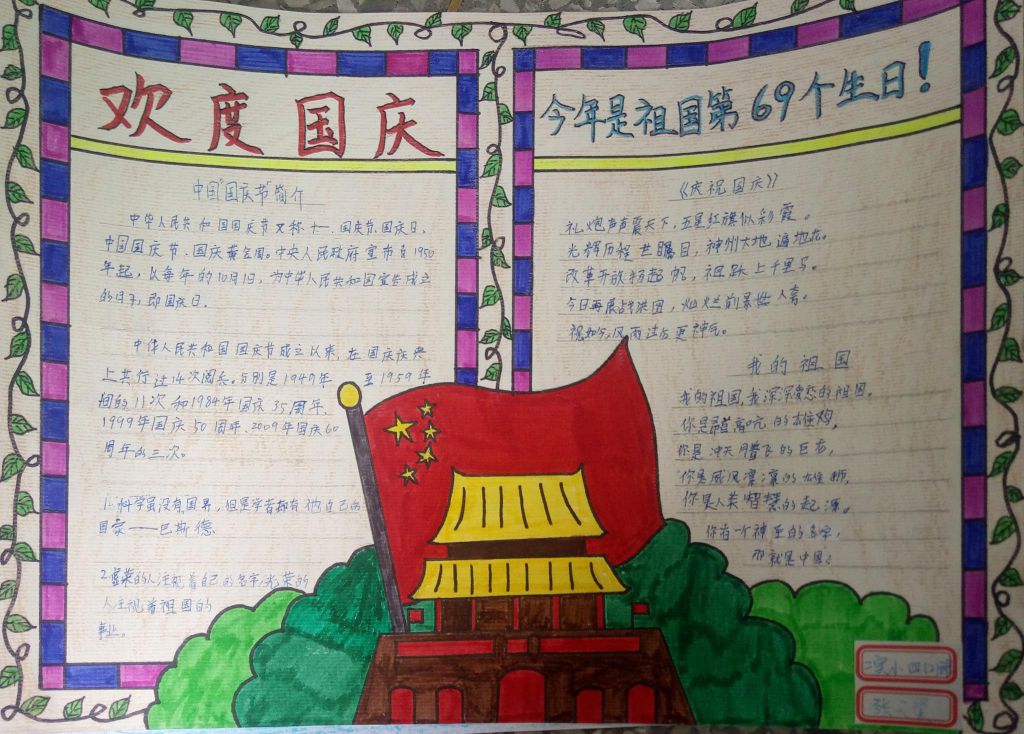 欢度国庆
中国"国庆节"简介
中华人民共和国国庆节又称十一、国庆节、国庆日、
中国国庆节、国庆黄金周。中央人民政府宣布自1950
年起，以每年的10月1日，为中华人民共和国宣告成立
的日子，即国庆日。
中华人民共和国国庆节成立以来，在国庆庆典
上共行过14次阅兵。分别是1949年至1959年
间的11次和1984年国庆35周年、
1999年国庆50周年、2009年国庆60
周年的三次。
1.科学虽没有国界，但是学者却有他自己的
国家——巴斯德
2.虚荣的人注视着自己的名字，光荣的
人注视着祖国的
事业。
今年是祖国第69个生日！
《庆祝国庆》
礼炮声声震天下，五星红旗似彩霞。
光辉历程世瞩目，神州大地遍地花。
改革开放扬超帆，祖跃上千里马。
今日再展战洪图，灿烂前景世人夸。
风雨过后更神气。
我的祖国
我的祖国，我深深爱恋的祖国。
你是昂首高吭的雄鸡，
你是冲天腾飞的巨龙，
你是威风凛凛的雄狮，
你是人类智慧的起源。
你有一个神圣的名字，
那就是中国！